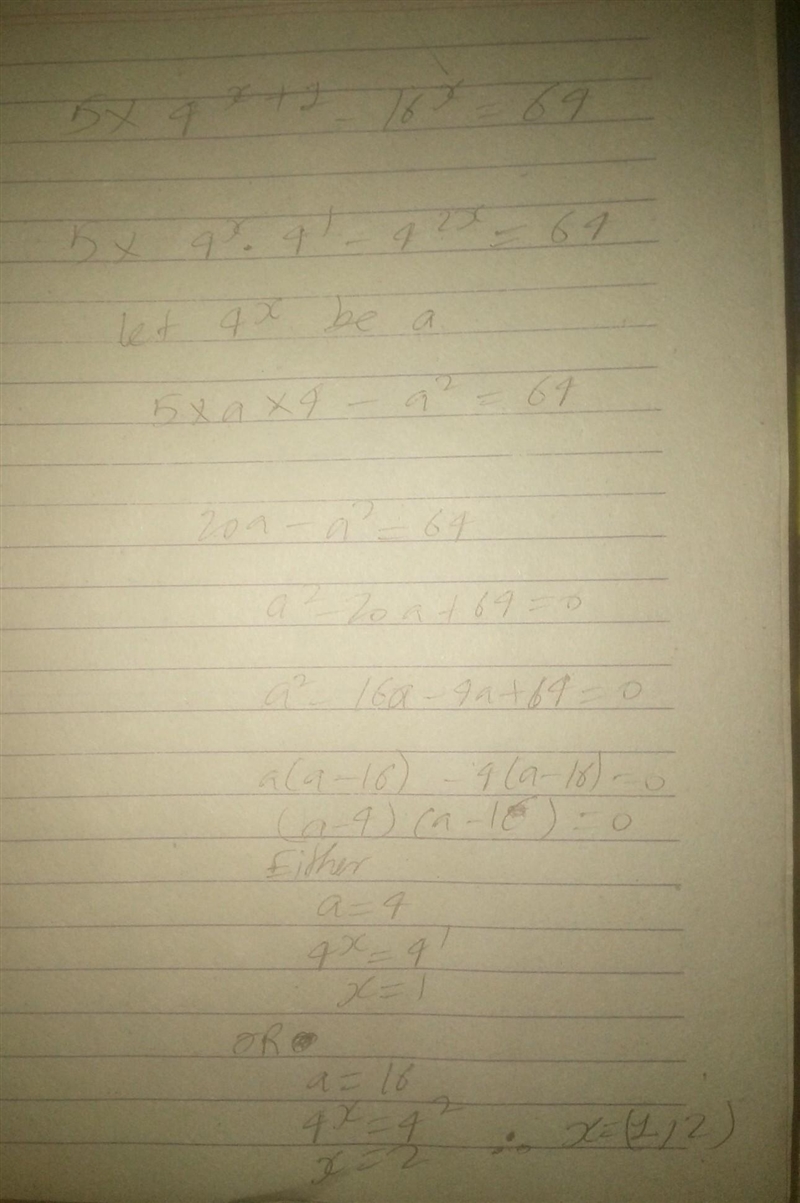 5× 4^{x+1} - 16^x = 64
5× 4^x . 4^1 - 4^{2x} = 64
let 4^x be a
5×a×4 - a^2 = 64
20a - a^2 = 64
a^2 - 20a + 64 = 0
a^2 - 16a - 4a + 64 = 0
a(a-16) - 4(a-16) = 0
(a-4) (a-16) = 0
Either
a = 4
4^x = 4^1
x = 1
OR
a = 16
4^x = 4^2
x = 2 ∴ x = (1,2)